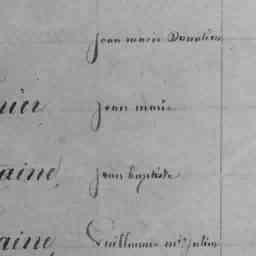 jean marie Donatien
nier jean marie
aine jean baptiste
aine Guillaume mie julien